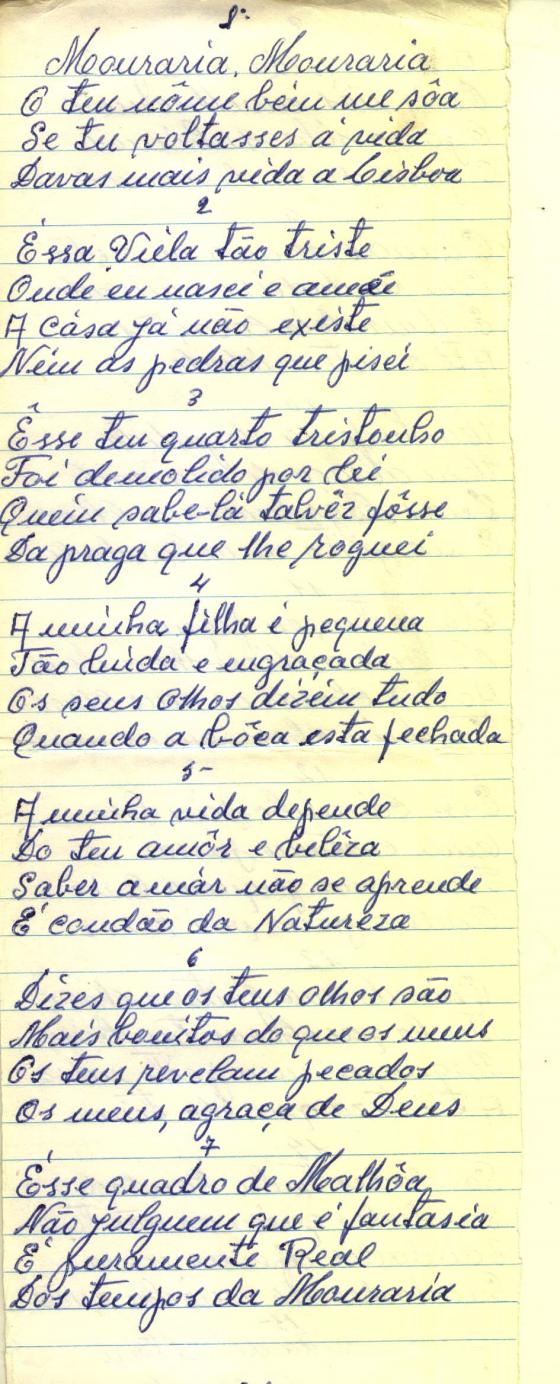 1º
Mouraria, Mouraria
O teu nôme bem me sôa
Se tu voltasses á vida
Davas mais vida a Lisboa
2
Éssa Viéla tão triste
Onde eu nasci e amei
A cása já não existe
Ném as pedras que pisei
3
Êsse teu quarto tristonho
Foi demolido por lei
Quém sabe-lá talvêz fôsse
Da praga que lhe roguei
4
A minha filha é pequena
Tão linda e engraçada
Os seus olhos dizém tudo
Quando a bôca esta fechada
5-
A minha vida depende
Do teu amôr e belêza
Saber amár não se aprende
É condão da Natureza
6
Dizes que os teus olhos são
Mais bonitos do que os meus
Os teus revelam pecados
Os meus, agraça de Deus
7
Ésse quadro de Malhôa
Não julguem que é fantasia
É puramente Real
Dos tempos da Mouraria